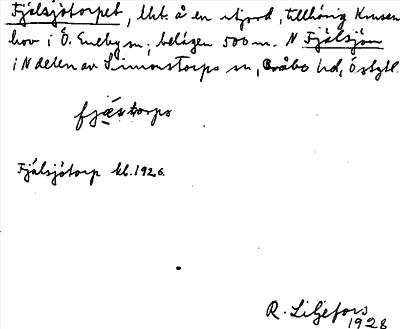 Fjälsjötorpet, lht. å en utjord, tillhörig Krusen
hov i Ö. Eneby sn; belägen 500 m. N Fjälsjön
i N delen av Simonstorps sn, Bråbo hd, Östgtl.
fjæstorps
Fjälsjötorp kb. 1926.
R. Liljefors
1928